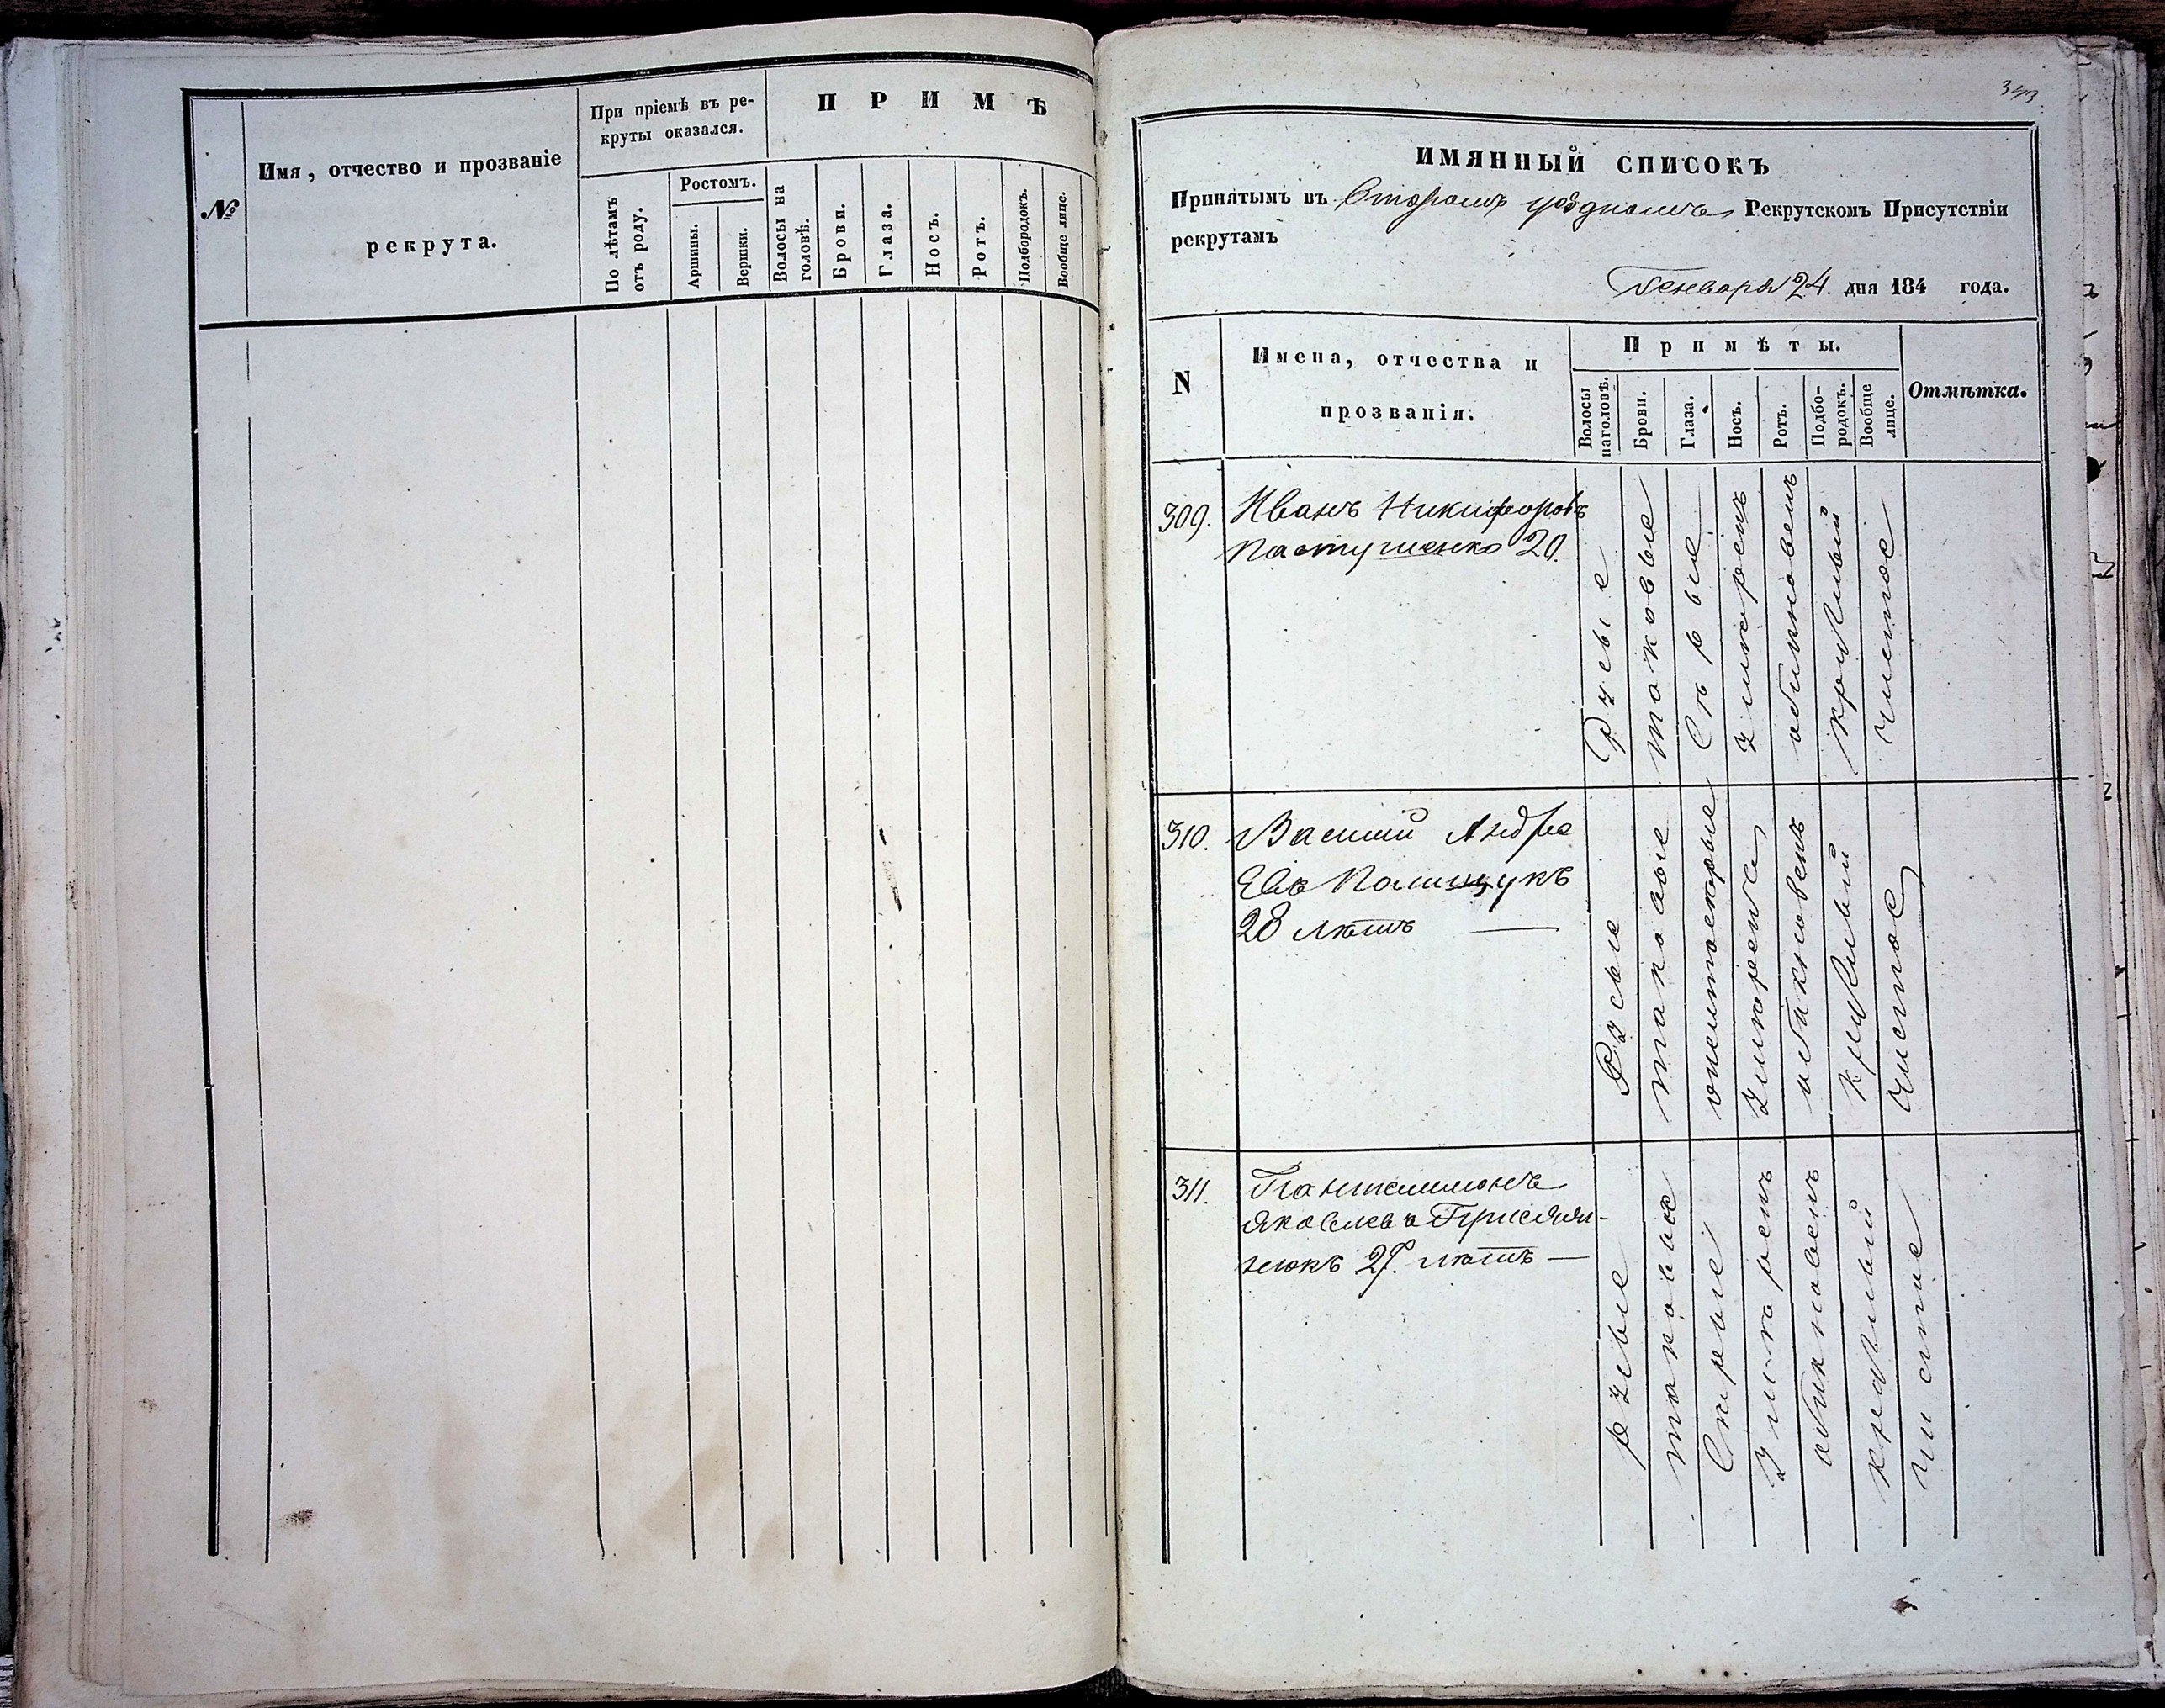 №
Имя, отчество и прозваніе
рекрута.
При пріемѣ въ ре-
круты оказался.
По лѣтамъ
отъ роду.
Ростомъ.
Аршины.
Вершки.
ПРИМѢ
Волосы на
головѣ.
Брови.
Глаза.
Носъ.
Ротъ.
Подбородокъ.
Вообще лице.
ИМЯННЫЙ СПИСОКЪ
Принятымъ въ Второмъ уѣздномъ Рекрутскомъ Присутствіи
рекрутамъ
Генваря 24 дня 184 года.
N
Имена, отчества и
прозванія.
Примѣты.
Волосы
наголовѣ.
Брови.
Глаза.
Носъ.
Ротъ.
Подбо-
родокъ.
Вообще
лице.
Отмѣтка.
309.
Иванъ Никифоровъ
Пастушенко 20.
Русые
таковые
Сѣрые
умѣренъ
обикновенъ
круглый
чистое
310.
Василій Андре
евъ Полищукъ
28 лѣтъ —
Русые
таковые
умѣренъ
обикновенъ
круглый
Чистое
311.
Пантелимонъ
Яковлевъ
нюкъ 27. лѣтъ —
русые
таковые
Сѣрые
Умѣренъ
обикновенъ
круглый
чистое